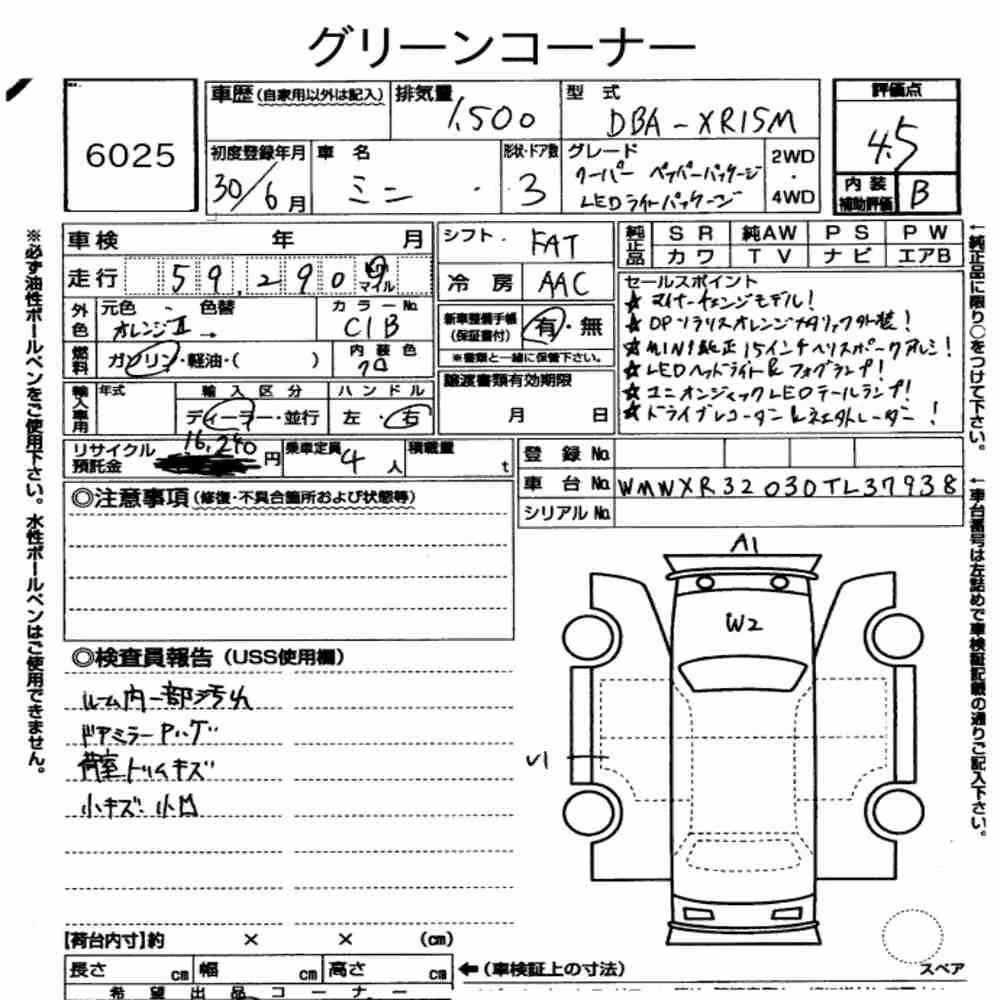 グリーンコーナー
6025
車歴(自家用以外は記入)
排気量 1,500
型式 DBA-XR15M
評価点 4.5
初度登録年月 30/6月
車名 ミニ
形状・ドア数 3
グレード クーパー ペッパーパッケージ
LEDライトパッケージ
2WD・4WD
内装補助評価 B
車検 年 月
シフト FAT
純正品 SR 純AW PS PW
カワ TV ナビ エアB
走行 59,290 マイル
冷房 AAC
セールスポイント
★マイナーチェンジモデル!
★OPソラリスオレンジメタリック外装!
★MINI純正15インチヘリスポークアルミ!
★LEDヘッドライト&フォグランプ!
★ユニオンジャックLEDテールランプ!
★ドライブレコーダー &
外色 元色・色替 オレンジⅡ →
カラーNo. C1B
新車整備手帳(保証書付) 有・無
※書類と一緒に保管下さい。
燃料 ガソリン・軽油・( )
内装色 クロ
輸入車用 年式
輸入区分 ディーラー・並行
ハンドル 左・右
譲渡書類有効期限
月 日
リサイクル預託金 16,240円
乗車定員 4人
積載量 t
登録No.
車台No. WMWXR32030TL37938
シリアルNo.
◎注意事項(修復・不具合箇所および状態等)
◎検査員報告(USS使用欄)
ルーム内一部汚れ
ドアミラー
荷室トリムキズ
小キズ 小凹
A1
W2
U1
スペア
【荷台内寸】約 × × (cm)
長さ cm 幅 cm 高さ cm
←(車検証上の寸法)
希望出品コーナー
※必ず油性ボールペンをご使用下さい。水性ボールペンはご使用できません。
←純正品に限り○をつけて下さい。
←車台番号は左詰めで車検証記載の通りご記入下さい。